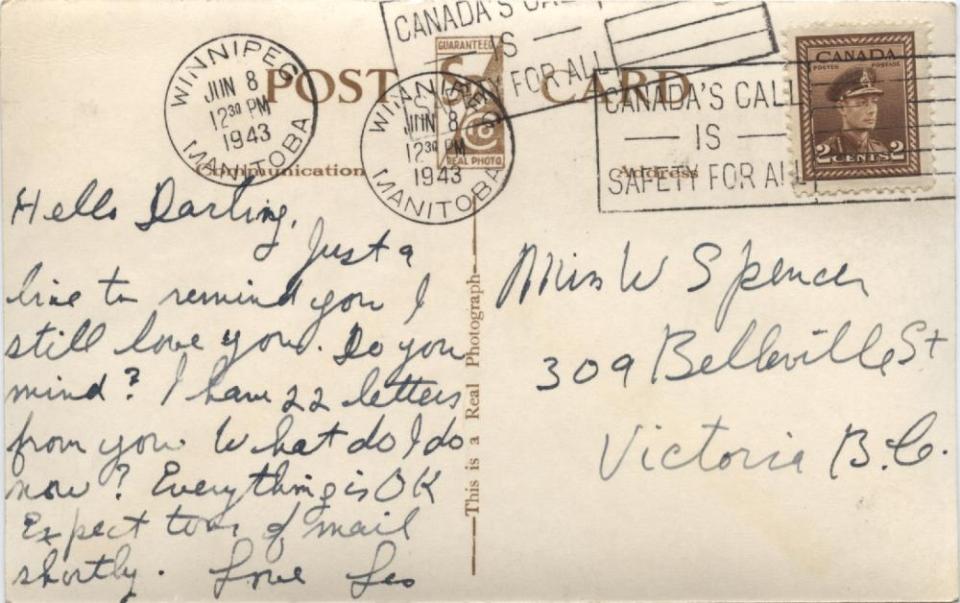 CANADA'S CALL
IS
SAFETY FOR ALL
WINNIPEG
JUN 8
12 30 PM
1943
MANITOBA
WINNIPEG
JUN 8
12 30 PM
1943
MANITOBA
POST CARD
GUARANTEED
REAL PHOTO
CANADA'S CALL
IS
SAFETY FOR ALL
CANADA
POSTES POSTAGE
2 CENTS 2
Communication
Address
Hello Darling,
Just a
line to remind you I
still love you. Do you
mind? I have 22 letters
from you. What do I do
now? Everything is OK
Expect tons of mail
shortly. Love Les
This is a Real Photograph
Miss W Spencer
309 Belleville St
Victoria B.C.